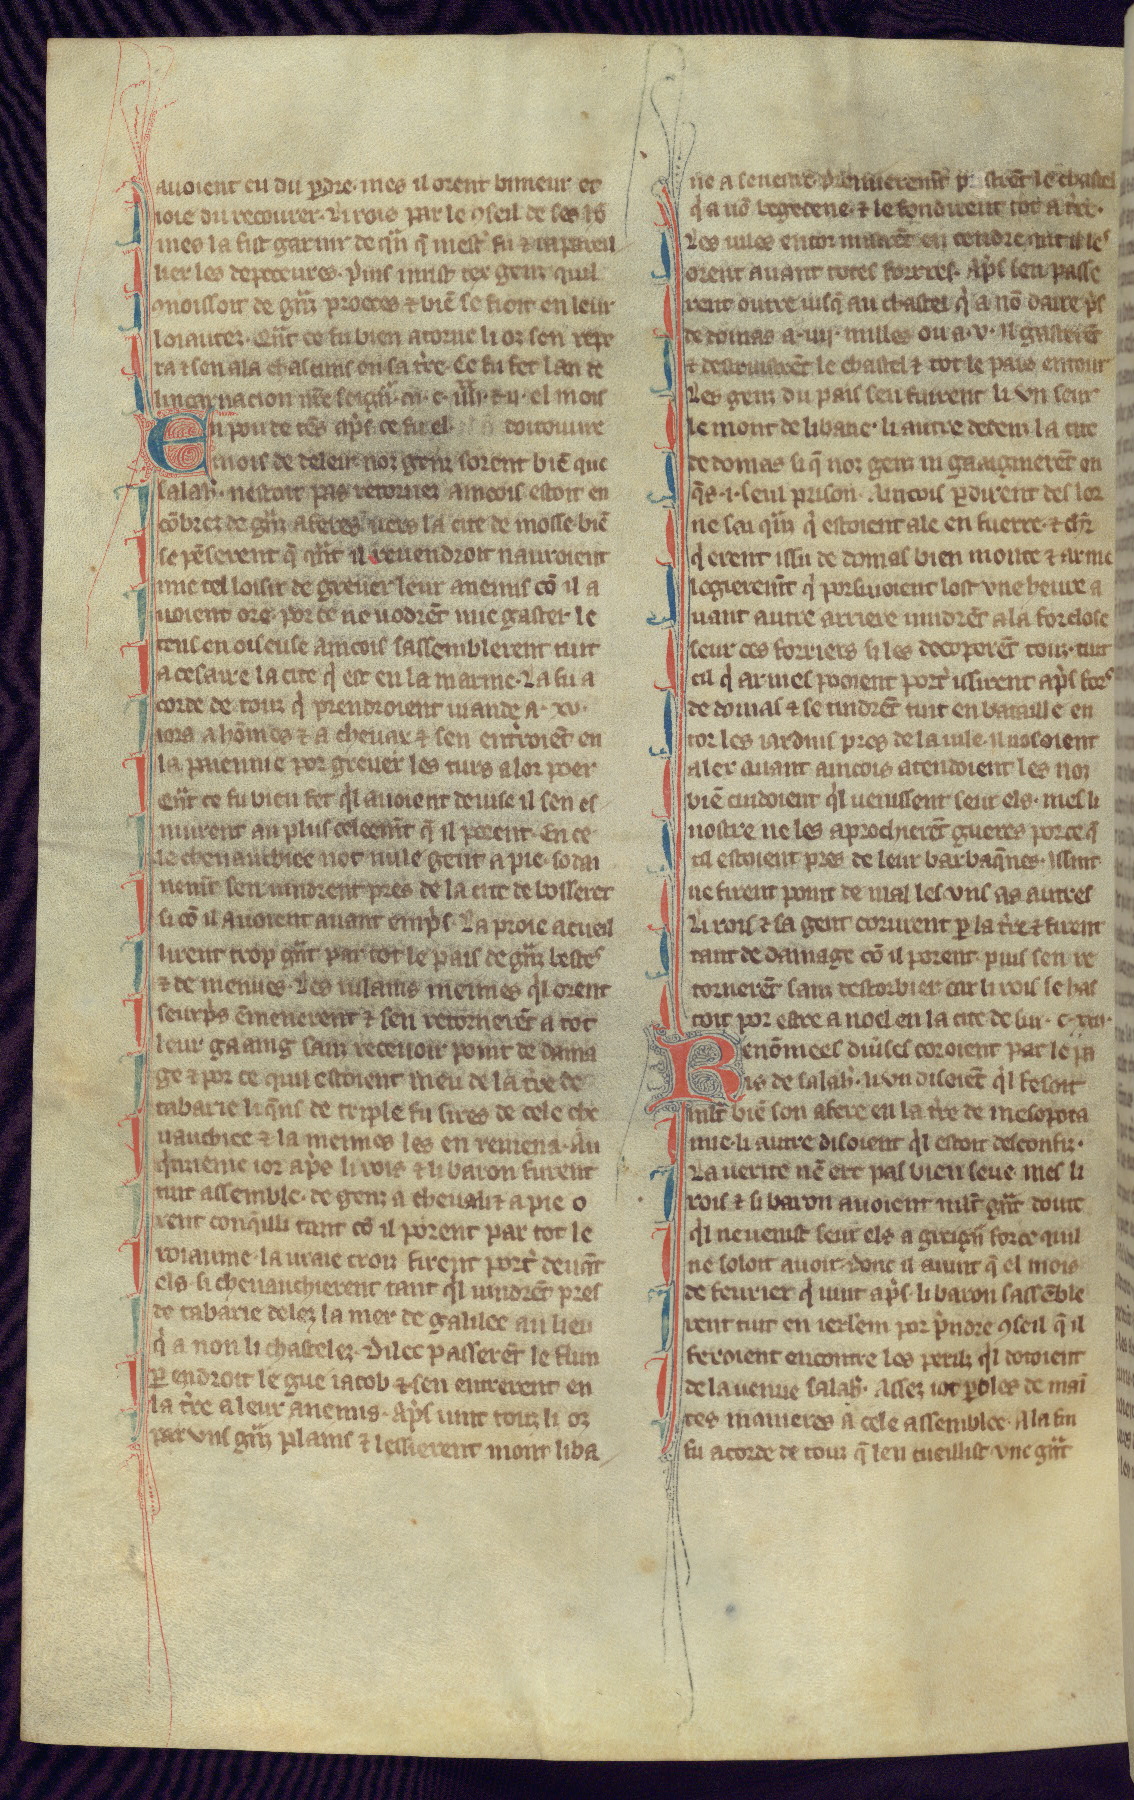 auoient eu du pdre. mes il orent hmeur et
ioie du recourer. Li rois par le ꝯseil de ses
mes la fist garnir de
lier les defteeures. Puis mist tex genz quil
ꝯnoissoit de gñz proeces ⁊ biē se fioit en leur
loiautez. Qñt ce fu bien atorne li oz sen repe
ra ⁊ sen ala chascuns en sa tr̄e. Ce fu fet lan de
lincarnacion el mois
En pou de tēs ap̃s ce fu el doitouure
mois de deleir noz genz sorent biē que
salah. nestoit pas retornez aincois estoit en
cōbrez de gñz aferes uers la cite de mosse. biē
se pēserent q̄ qñt il reuendroit nauroient
mie tel loisir de greuer leur anemis cō il a
uoient ore. por ce ne uodrēt mie gaster le
tens en oiseuse aincois sassemblerent tuit
a cesaire la cite q̇ est en la marine. La fu a
corde de touz q̇ prendroient uiande a .xv.
iors a hōmes ⁊ a cheuax ⁊ sen entroiēt en
la paiennie por greuer les turs a lor poer
Qñt ce fu bien fet q̇l auoient deuise il sen es
murent au plus celeemt q̄ il porent. En ce
le cheuauchiee not nule gent a pie. sodai
nemt sen uindrent pres de la cite de bosseret
si cō il auoient auant empris. La proie acueil
lirent trop gñt par tot le pais de gñz bestes
⁊ de menues. Les uilains meimes q̇l orent
seurp̃s ēmenerent ⁊ sen retornerēt a tot
leur gaaing sanz receuoir point de dama
ge ⁊ por ce quil estoient meu de la tr̄e de
tabarie li q̄ns de triple fu sires de cele che
uauchiee ⁊ la meimes les en remena. Au
q̇nzieme ior ap̃s li rois ⁊ li baron furent
tuit assemble. de genz a cheual ⁊ a pie o
rent conq̇lli tant cō il porent par tot le
roiaume. la uraie croiz firent port̾ deuāt
els. si cheuauchierent tant q̇l uindrēt pres
de tabarie delez la mer de galilee au lieu
q̇ a non li chastelez. Dilec passerēt le flun
p̱ endroit le gue iacob ⁊ sen entrerent en
la tr̄e a leur anemis. Ap̃s uint touz li oz
par uns gñz plains ⁊ lessierent mont liba
ne a senestre. le chastel
q̇ a nō begecene. ⁊ le fondirent tot a tr̄e.
Les uiles entor mistrēt en cendre qñt il les
orent auant totes forrees. Ap̃s sen passe
rent outre iusq̄ au chastel q̇ a nō daire p̃s
de domas a .iiij. milles ou a .v. Il gasterēt
⁊ destruistrēt le chastel ⁊ tot le pais entour
Les genz du pais sen fuirent li vn seur
le mont de libane. li autre dedenz la cite
de domas si q̄ noz genz ni gaaignerēt on
q̄s .i. seul prison. Aincois pdirent des lor
ne sai qñz q̇ estoient ale en fuerre. ⁊ cil
q̇ erent issu de domas bien monte ⁊ arme
legieremt q̇ porsiuoient lost vne heure a
uant autre arriere uindrēt a la forclose
seur ces forriers si les decoperēt touz. tuit
cil q̇ armes pooient port̾ issirent ap̃s fors
de domas ⁊ se tindrēt tuit en bataille en
tor les iardins pres de la uile. il nosoient
aler auant aincois atendoient les noz
biē cuidoient q̇l uenissent seur els. mes li
nostre ne les aprochierēt gueres por ce q̄
cil estoient pres de leur barbaq̄nes. Issint
ne firent point de mal les vns as autres
Li rois ⁊ sa gent corurent p̱ la tr̄e ⁊ firent
tant de damage cō il porent. puis sen re
tornerēt sanz destorbier. car li rois se has
toit por estre a noel en la cite de sur.
Renōmees diuses coroient par le pa
is de salah. li vn disoiēt q̇l fesoit
mlt biē son afere en la tr̄e de mesopota
mie. li autre disoient q̇l estoit desconfiz.
La uerite nē ert pas bien seue. mes li
rois ⁊ li baron auoient mlt gñt doute
q̇l ne uenist seur els a greign̄ force quil
ne soloit auoir. Donc il auint q̄ el mois
de feurier q̇ uint ap̃s. li baron sassēble
rent tuit en ierlem por p̃ndre ꝯseil q̄ il
feroient encontre les perilz q̇l dotoient
de la uenue salah. Assez iot poles de mai
tes manieres a cele assemblee. A la fin
fu acorde de touz q̄ len cueillist vne gñt